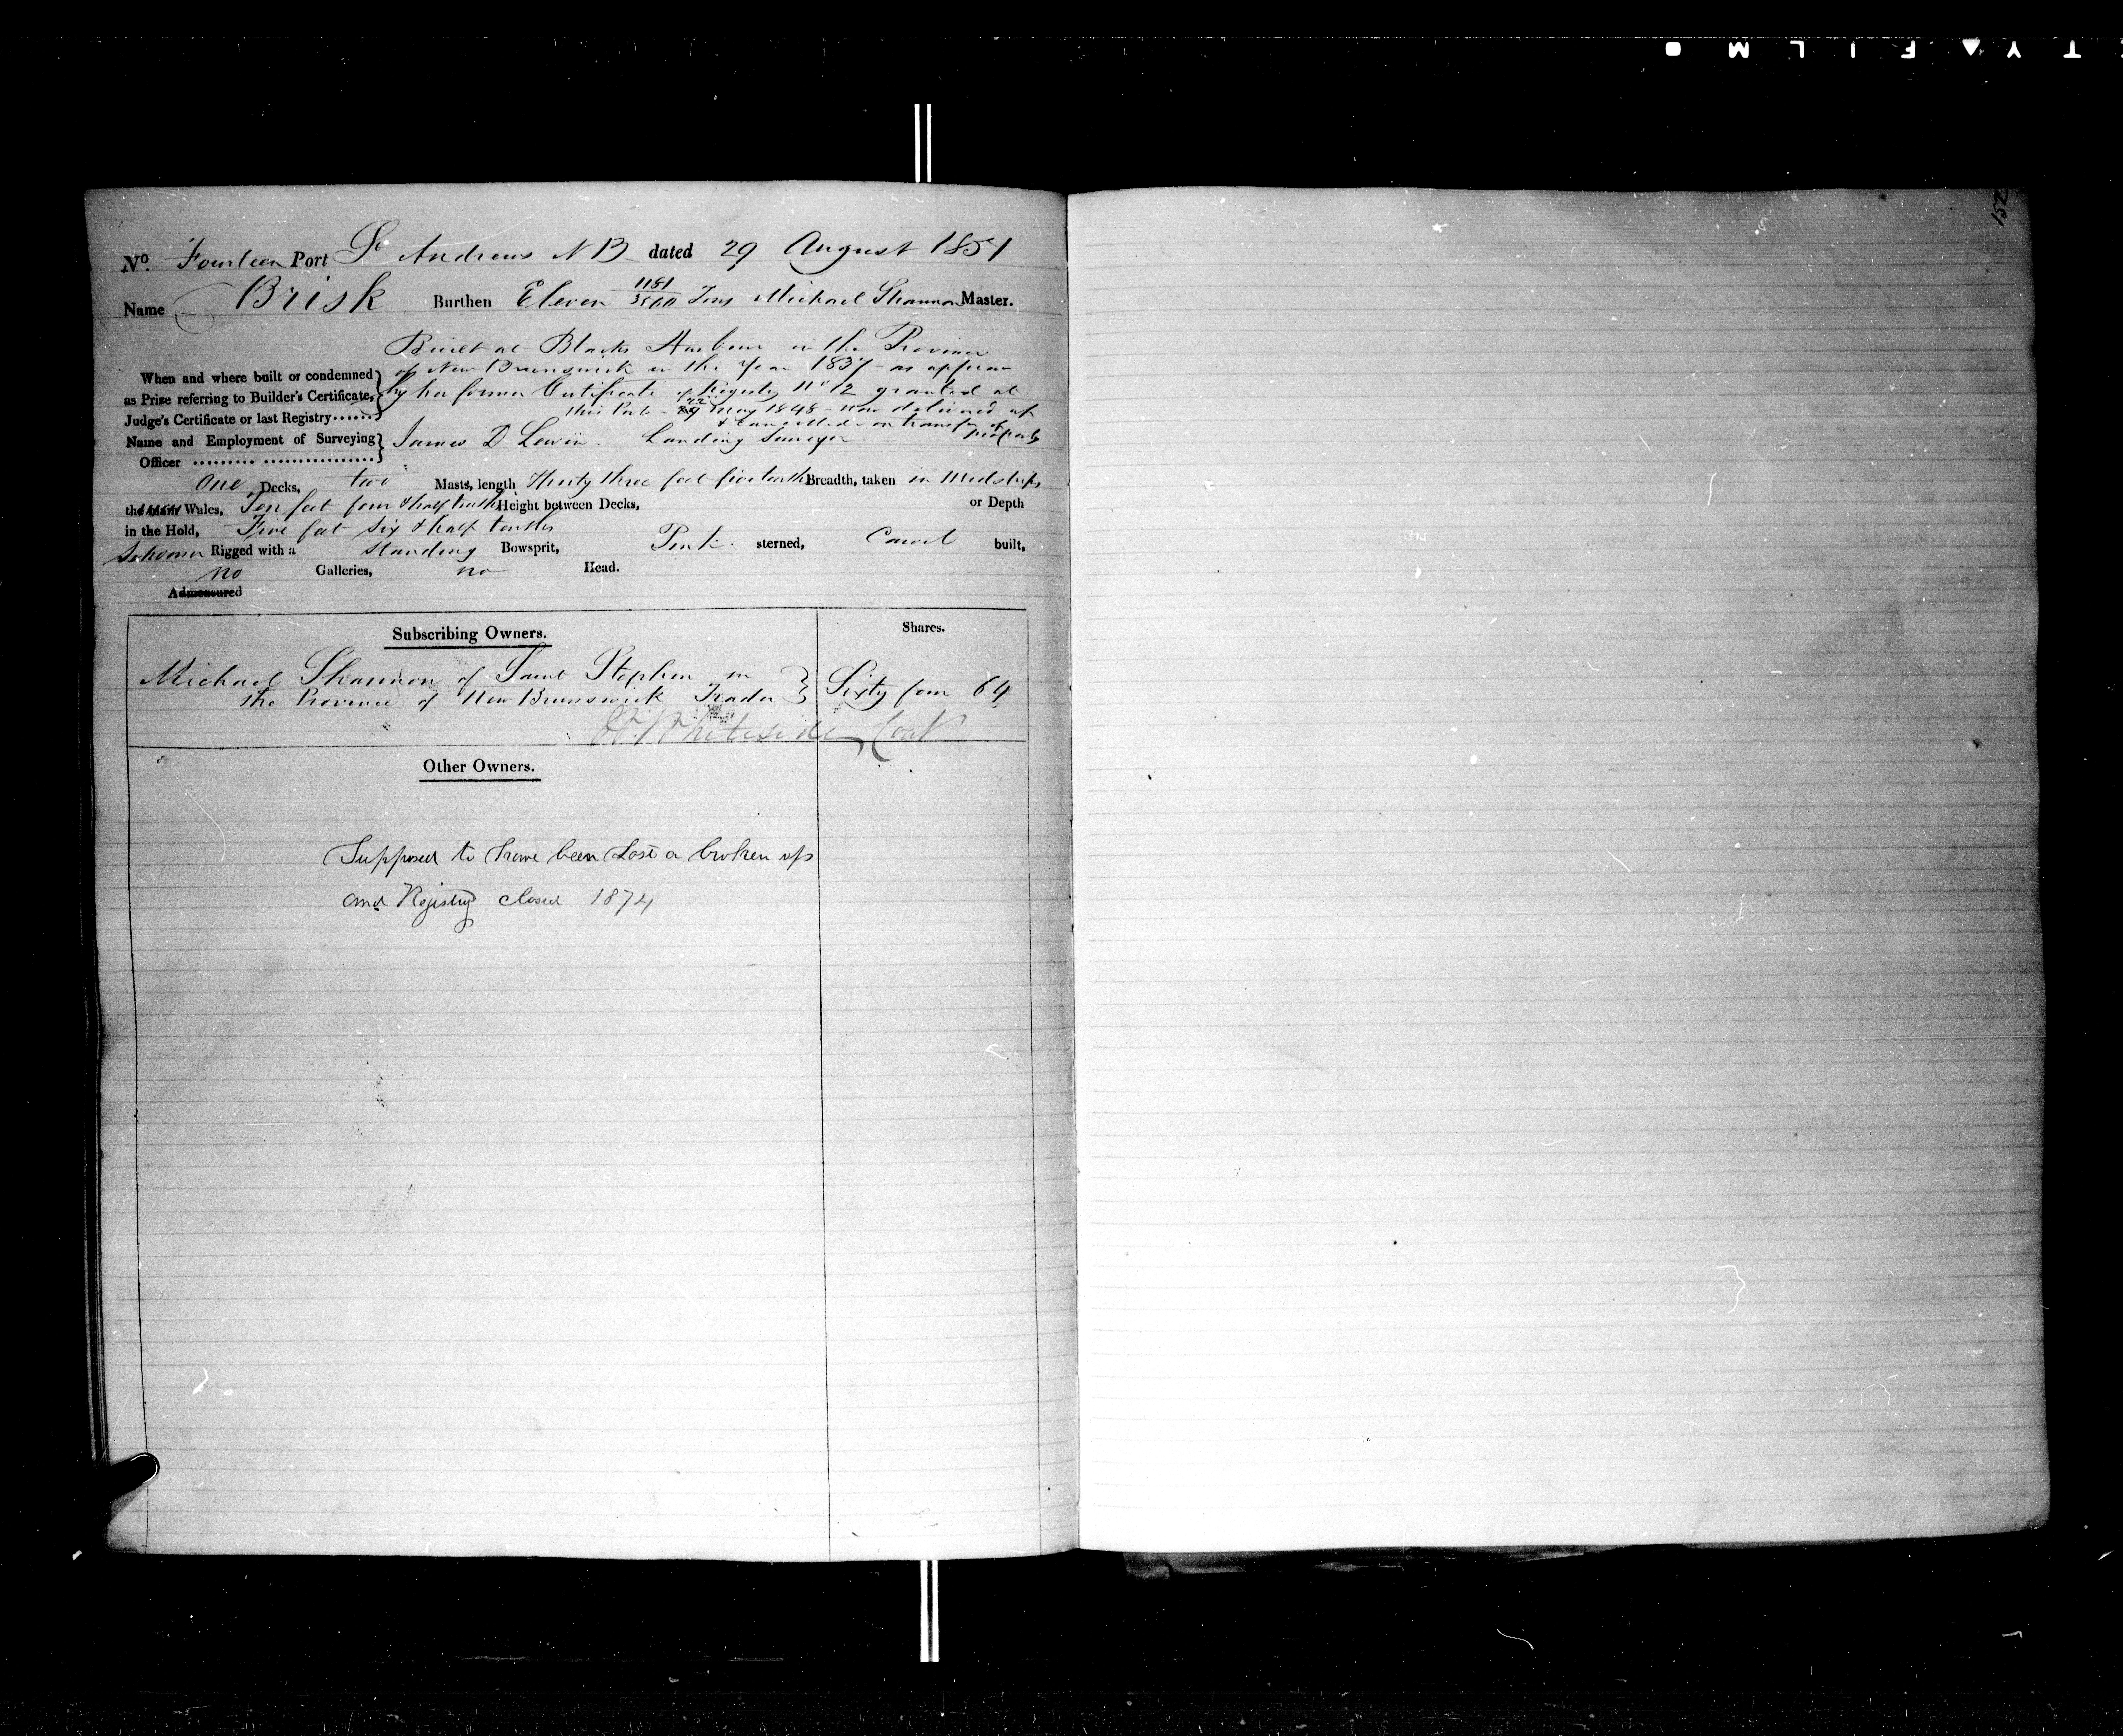 No. Fourteen Port St Andrews N B dated 29 August 1851
Name Brisk Burthen Eleven 1181/3500 Tons Michael Shannon Master.
Built at Blacks Harbour in the Province
of New Brunswick in the Year 1837 as appears
When and where built or condemned
by her former Certificate of Registry No 12 granted at
as Prize referring to Builder's Certificate,
this Port 22 May 1848 now delivered up
Judge's Certificate or last Registry
& Cancelled on transfer of property
Name and Employment of Surveying James D. Lewin Landing Surveyor
Officer
One Decks, two Masts, length Thirty three feet five tenths Breadth, taken in Midships
the main Wales, Ten feet four & half tenths Height between Decks, or Depth
in the Hold, Five feet six & half tenths
Schooner Rigged with a Standing Bowsprit, Pink sterned, Carvel built,
no Galleries, no Head.
Admeasured
Subscribing Owners. Shares.
Michael Shannon of Saint Stephen in
the Province of New Brunswick Trader Sixty four 64
Whiteside
Other Owners.
Supposed to have been Lost or broken up
and Registry closed 1874